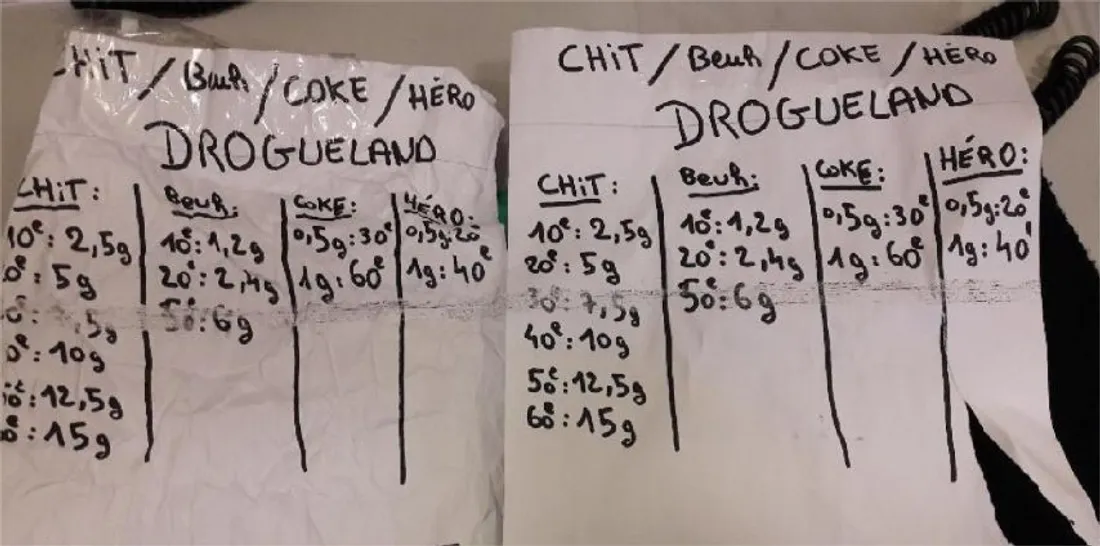 HiT / Beuh / COKE / HÉRO
DROGUELAND
CHiT:
10€: 2,5g
0€: 5g
,5g
0€: 10g
0€: 12,5g
0€: 15g
Beuh:
10€: 1,2g
20€: 2,4g
50€: 6g
COKE:
0,5g: 30€
1g: 60€
HÉRO:
0,5g: 20€
1g: 40€
CHiT / Beuh / COKE / HÉRO
DROGUELAND
CHiT:
10€: 2,5g
20€: 5g
30€: 7,5g
40€: 10g
50€: 12,5g
60€: 15g
Beuh:
10€: 1,2g
20€: 2,4g
50€: 6g
COKE:
0,5g: 30€
1g: 60€
HÉRO:
0,5g: 20€
1g: 40€